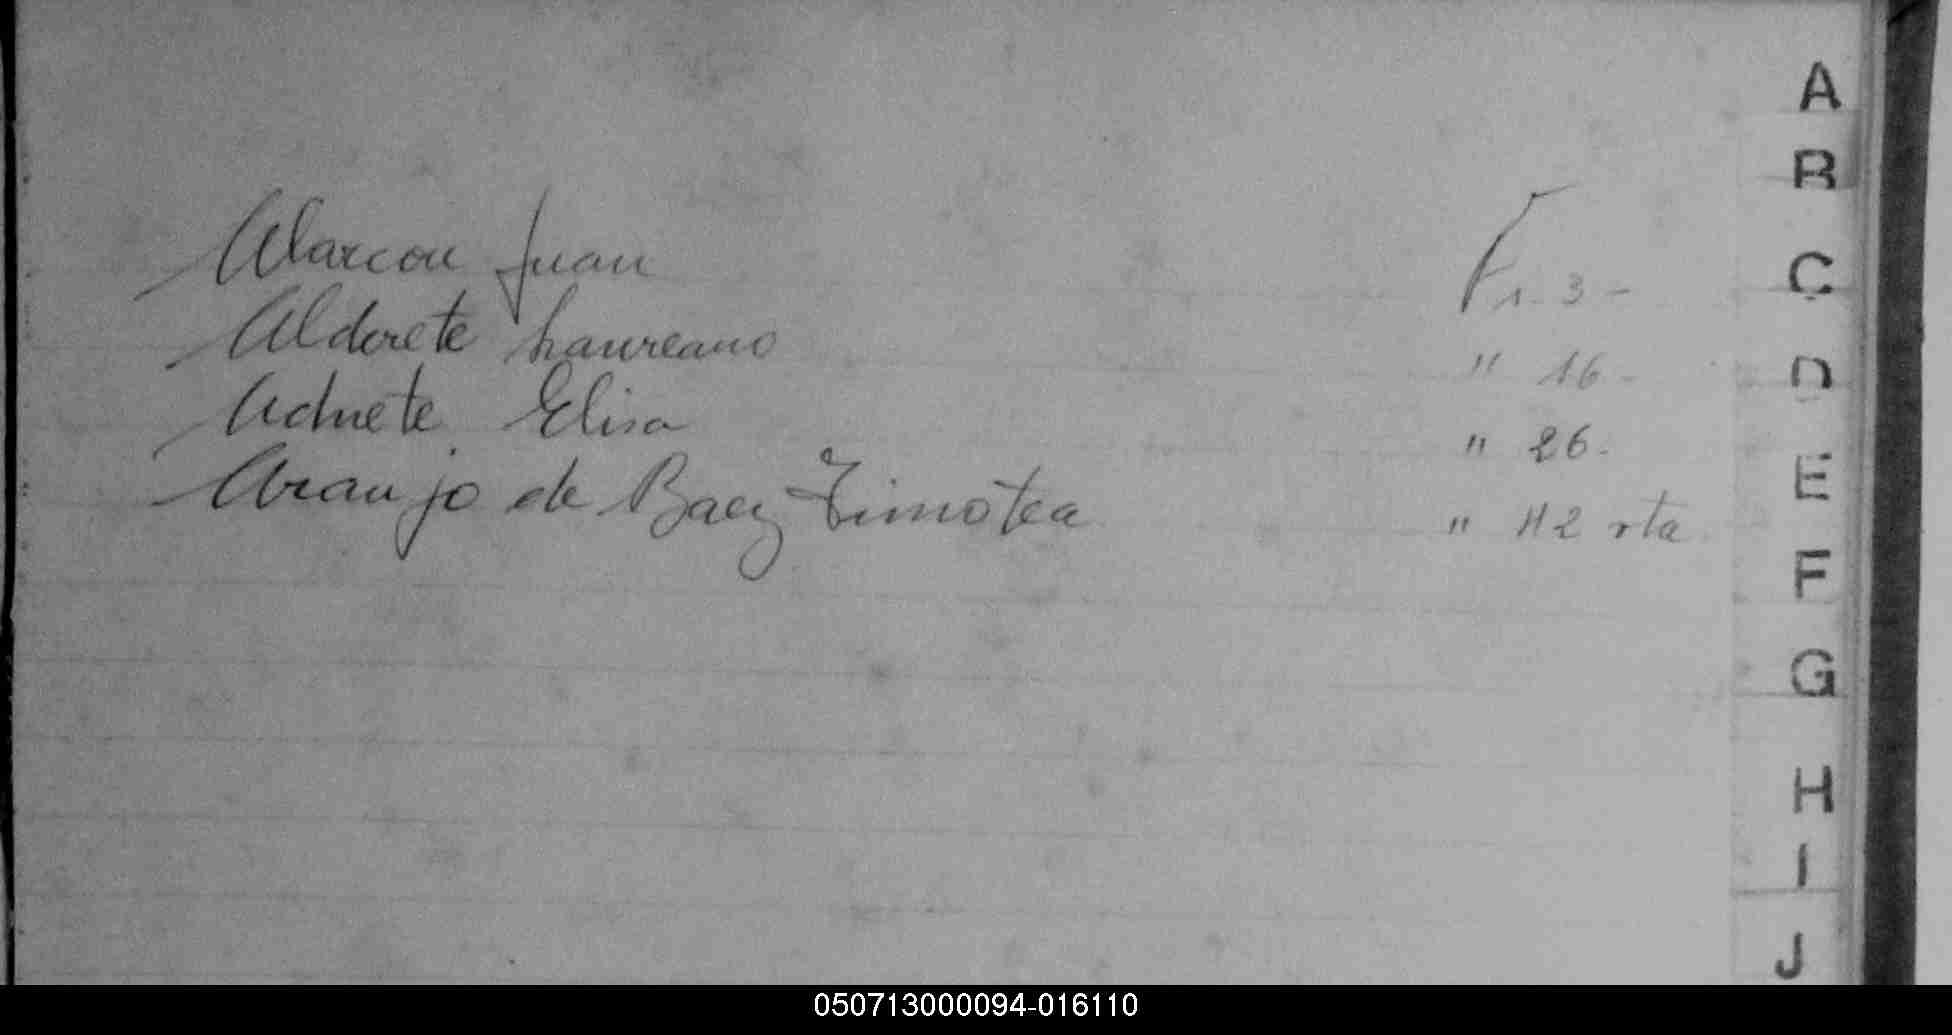 Alarcon Juan Fs. 3 -
Alderete Laureano " 16 -
Adnete Elisa " 26 -
Araujo de Baez Timotea " 42 vta
A
B
C
D
E
F
G
H
I
J
050713000094-016110